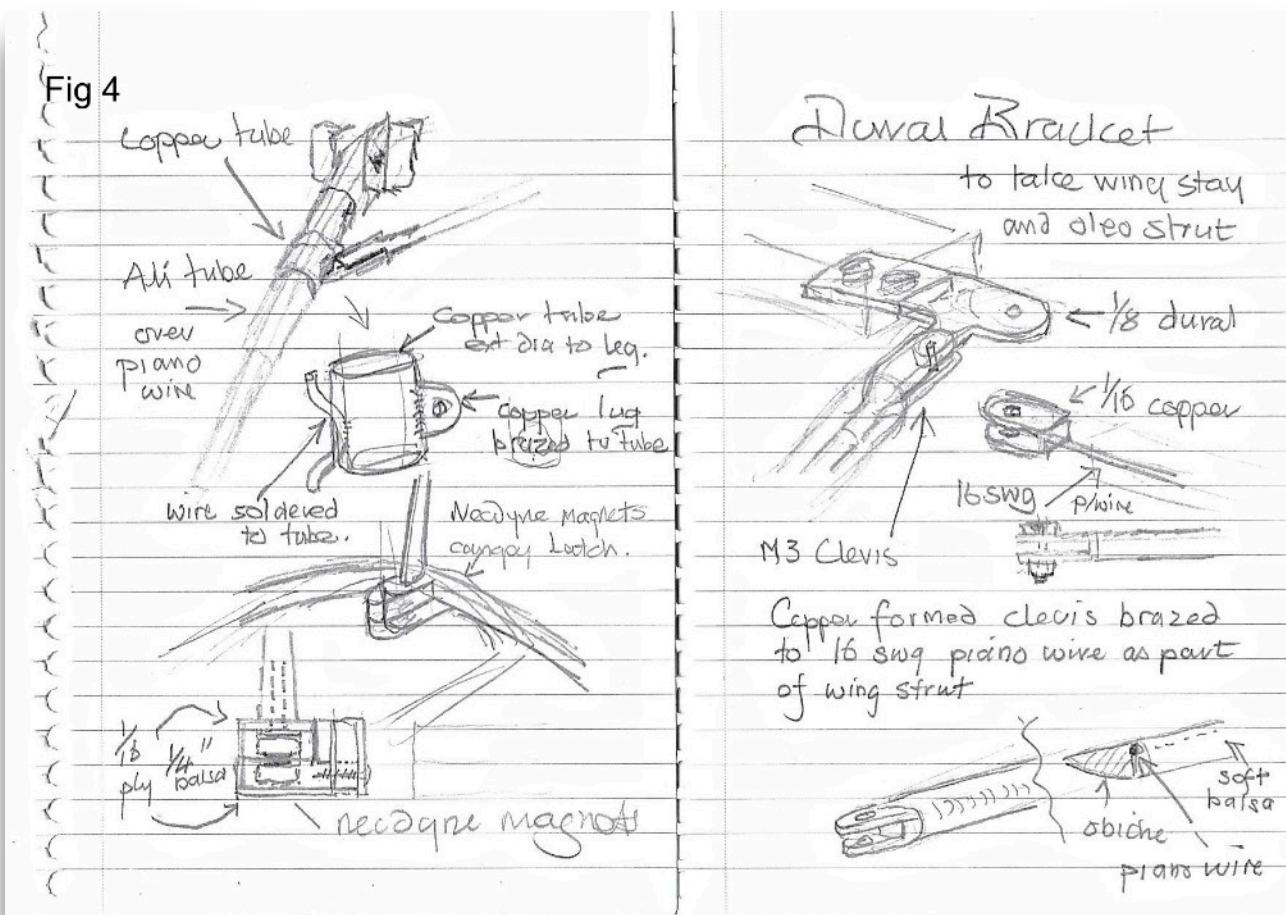 Fig 4
Copper tube
Ali tube
over
piano
wire
Copper tube
ext dia to leg.
Copper lug
brazed to tube
wire soldered
to tube.
Neodyne magnets
canopy Latch.
1/16
ply
1/4"
balsa
neodyne magnets
Dural Bracket
to take wing stay
and oleo strut
1/8 dural
1/16 copper
16swg
p/wire
M3 Clevis
Copper formed clevis brazed
to 16 swg piano wire as part
of wing strut
soft
balsa
obiche
piano wire